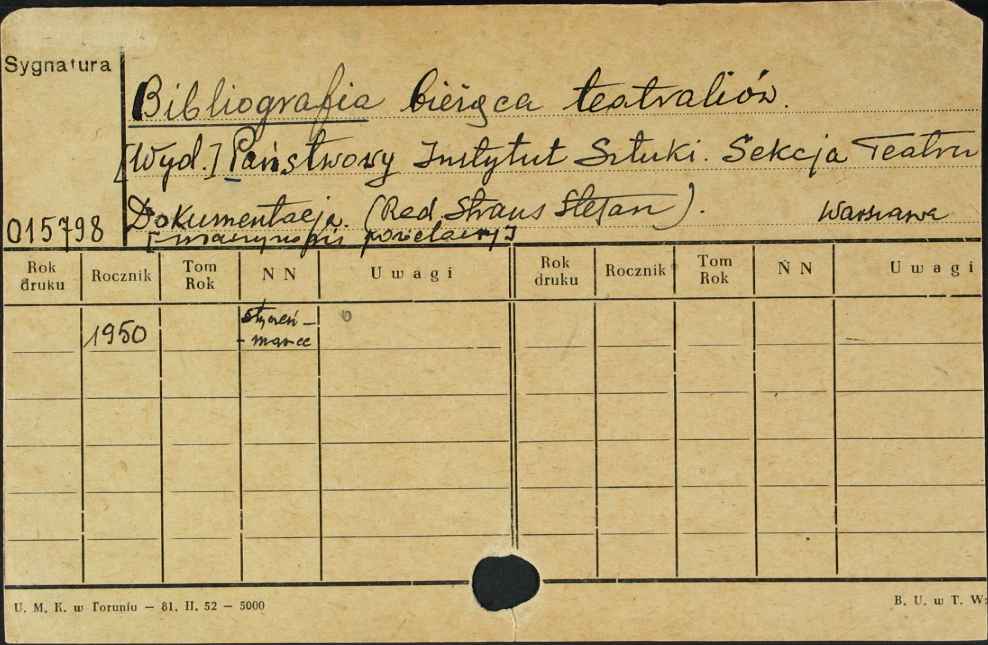 Sygnatura
Bibliografia bieżąca teatraliów.
[Wyd.] Państwowy Instytut Sztuki. Sekcja Teatru
Dokumentacja. (Red. Straus Stefan). Warszawa
015798
[maszynopis powielany]
Rok druku Rocznik Tom Rok N N Uwagi Rok druku Rocznik Tom Rok N N Uwagi
1950 styczeń –
– marzec
U. M. K. w Toruniu — 81. II. 52 — 5000
B. U. w T. W: